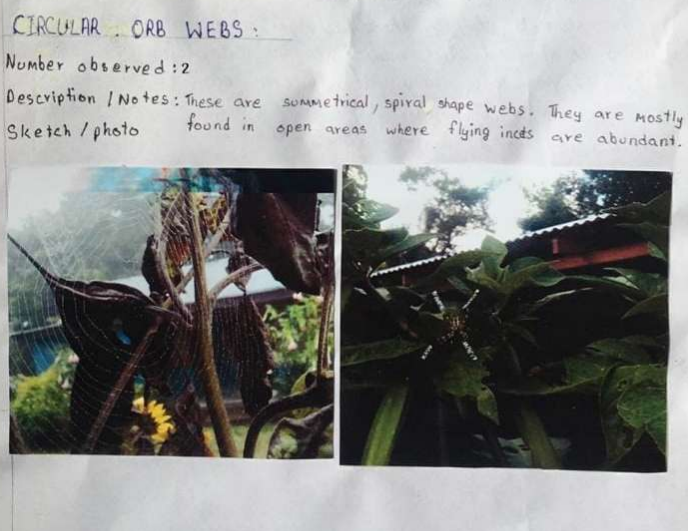 CIRCULAR ORB WEBS:
Number observed: 2
Description / Notes: These are summetrical, spiral shape webs. They are mostly
Sketch / photo found in open areas where flying incets are abundant.